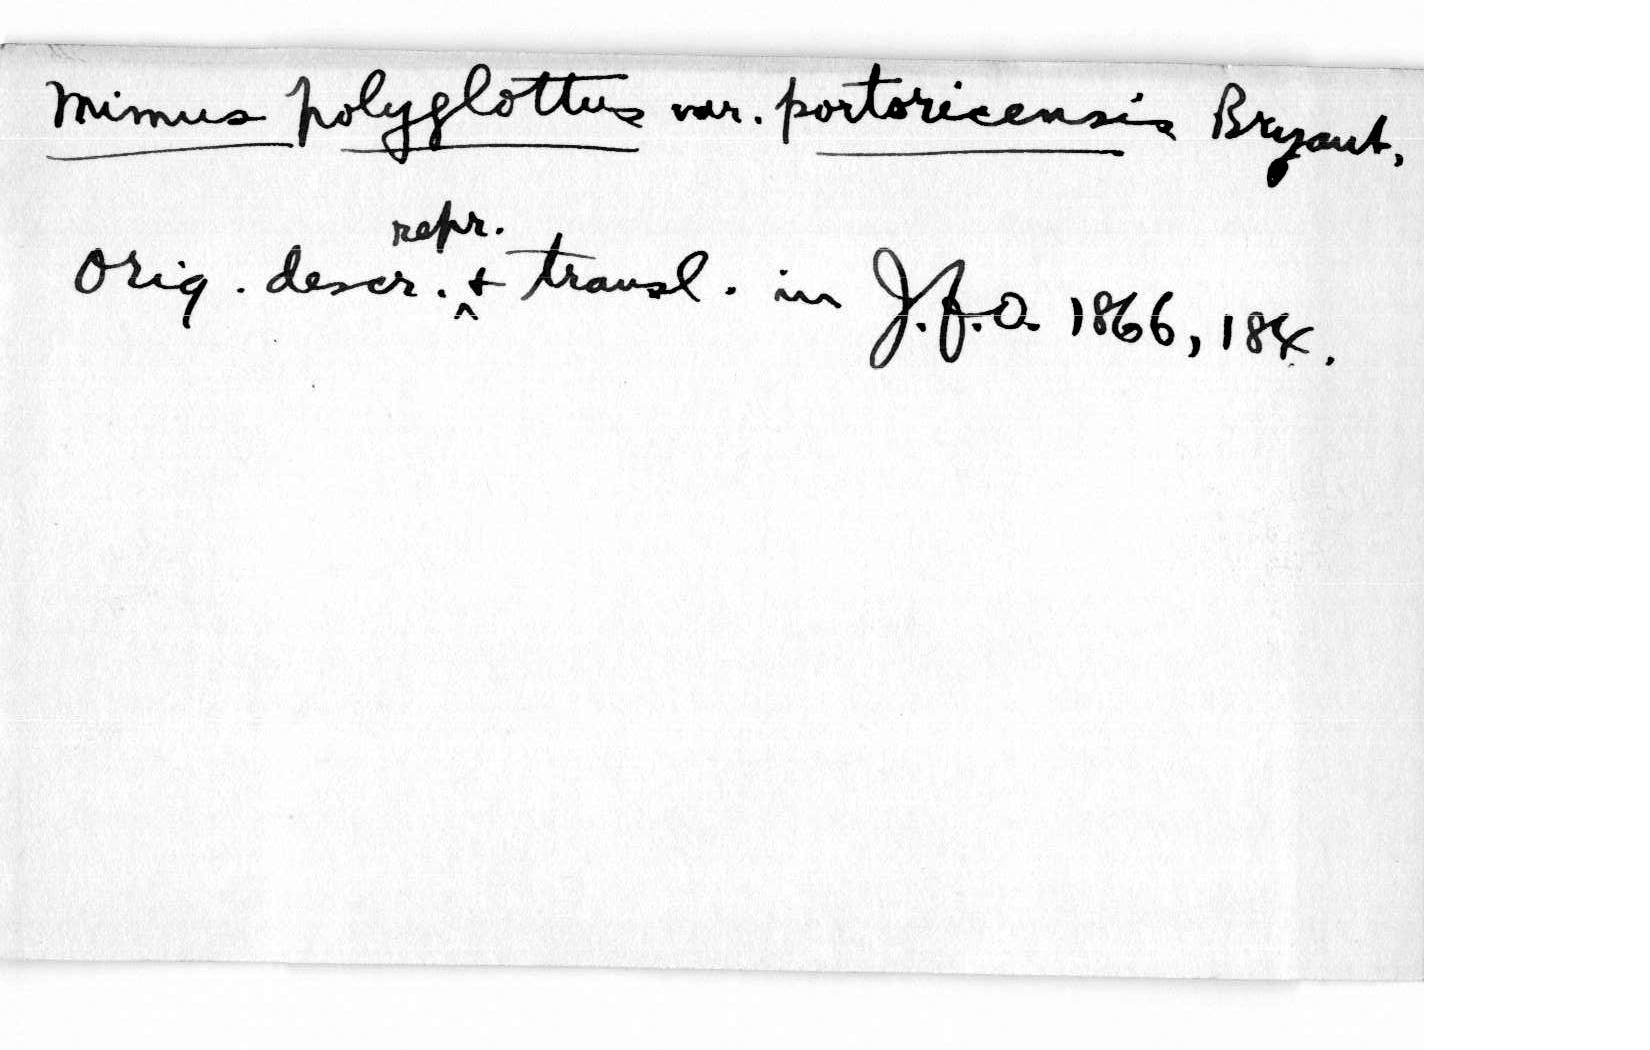 Mimus polyglottus var. portoricensis Bryant,
Orig. descr. repr. & transl. in J.f.O. 1866, 184.